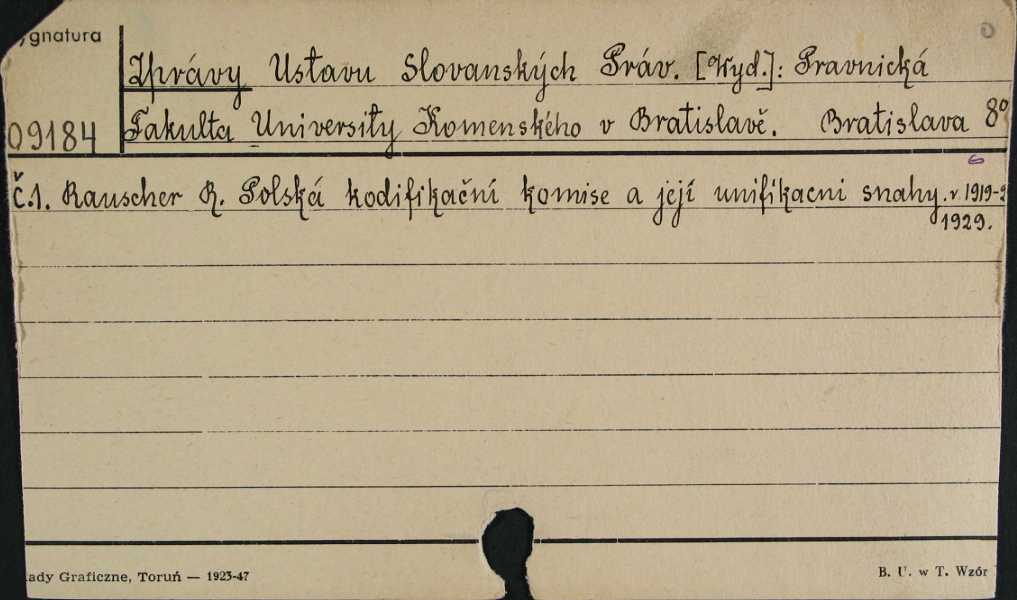 ygnatura
Zprávy Ustavu Slovanských Práv. [Wyd.]: Pravnická
09184 Fakulta University Komenského v Bratislavě. Bratislava 8º
6
Č.1. Rauscher R. Polská kodifikační komise a její unifikacni snahy. v 1919-2
1929.
ady Graficzne, Toruń — 1923-47
B. U. w T. Wzór